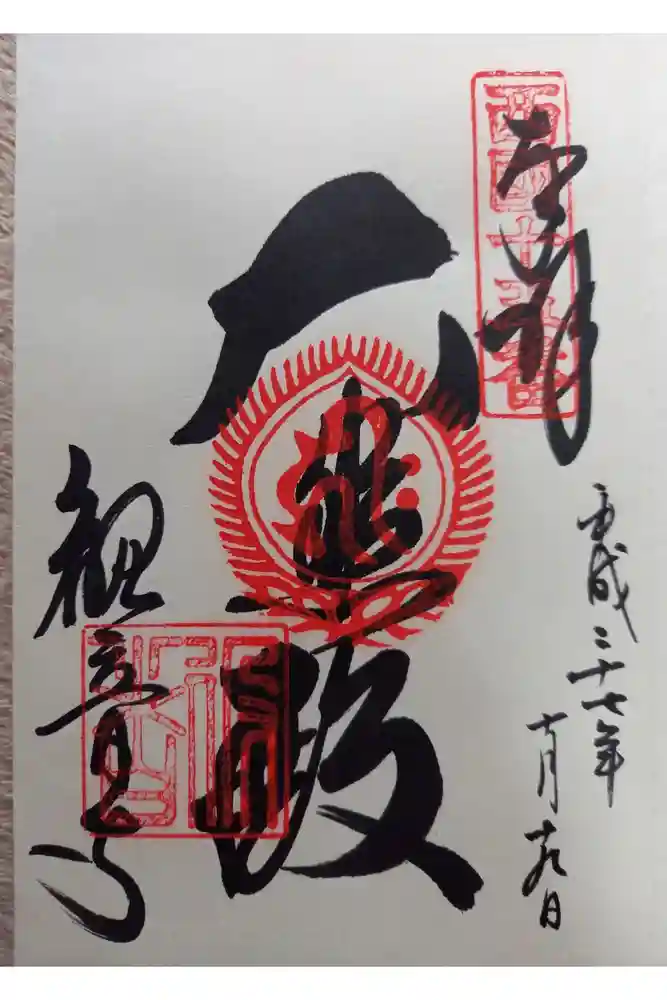 奉拝
西國十五番
平成二十七年
十月十九日
大悲殿
観音寺